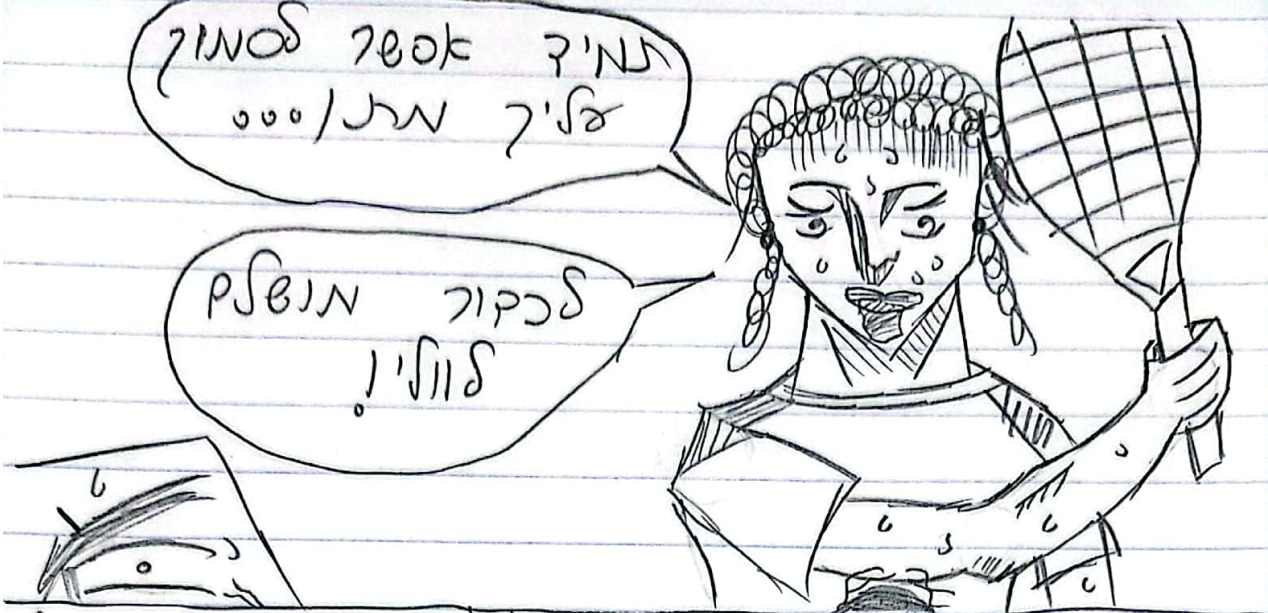 תמיד אפשר לסמוך
עליך מרתן...
לכדור מושלם
לוולי!